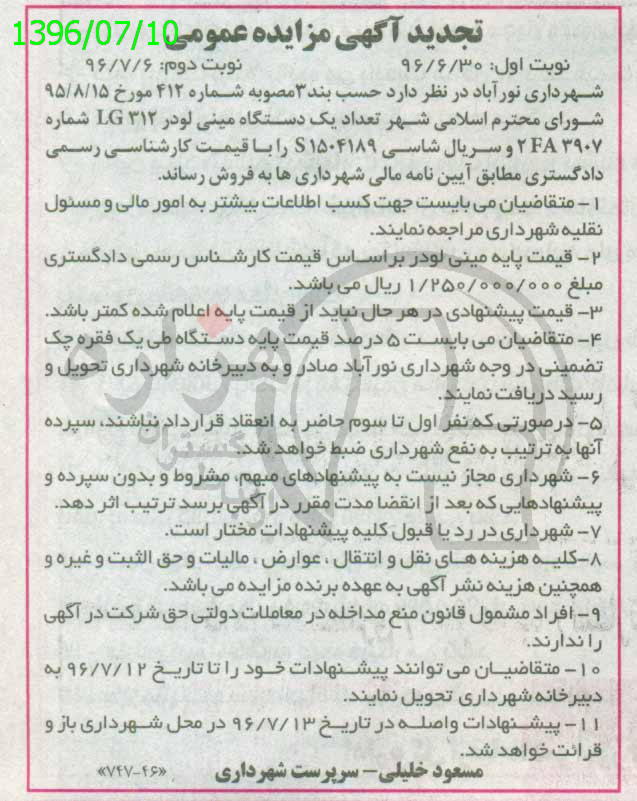 1396/07/10
تجدید آگهی مزایده عمومی
نوبت اول: ۹۶/۶/۳۰ نوبت دوم: ۹۶/۷/۶
شهرداری نورآباد در نظر دارد حسب بند۳مصوبه شماره ۴۱۲ مورخ ۹۵/۸/۱۵
شورای محترم اسلامی شهر تعداد یک دستگاه مینی لودر LG ۳۱۲ شماره
۲ FA ۳۹۰۷ و سریال شاسی S۱۵۰۴۱۸۹ را با قیمت کارشناسی رسمی
دادگستری مطابق آیین نامه مالی شهرداری ها به فروش رساند.
۱- متقاضیان می بایست جهت کسب اطلاعات بیشتر به امور مالی و مسئول
نقلیه شهرداری مراجعه نمایند.
۲- قیمت پایه مینی لودر براساس قیمت کارشناس رسمی دادگستری
مبلغ ۱/۲۵۰/۰۰۰/۰۰۰ ریال می باشد.
۳- قیمت پیشنهادی در هر حال نباید از قیمت پایه اعلام شده کمتر باشد.
۴- متقاضیان می بایست ۵ درصد قیمت پایه دستگاه طی یک فقره چک
تضمینی در وجه شهرداری نورآباد صادر و به دبیرخانه شهرداری تحویل و
رسید دریافت نمایند.
۵- درصورتی که نفر اول تا سوم حاضر به انعقاد قرارداد نباشند، سپرده
آنها به ترتیب به نفع شهرداری ضبط خواهد شد.
۶- شهرداری مجاز نیست به پیشنهادهای مبهم، مشروط و بدون سپرده و
پیشنهادهایی که بعد از انقضا مدت مقرر در آگهی برسد ترتیب اثر دهد.
۷- شهرداری در رد یا قبول کلیه پیشنهادات مختار است.
۸-کلیه هزینه های نقل و انتقال ، عوارض ، مالیات و حق الثبت و غیره و
همچنین هزینه نشر آگهی به عهده برنده مزایده می باشد.
۹- افراد مشمول قانون منع مداخله در معاملات دولتی حق شرکت در آگهی
را ندارند.
۱۰- متقاضیان می توانند پیشنهادات خود را تا تاریخ ۹۶/۷/۱۲ به
دبیرخانه شهرداری تحویل نمایند.
۱۱- پیشنهادات واصله در تاریخ ۹۶/۷/۱۳ در محل شهرداری باز و
قرائت خواهد شد.
مسعود خلیلی- سرپرست شهرداری «۷۴۷-۴۶»
هزاره